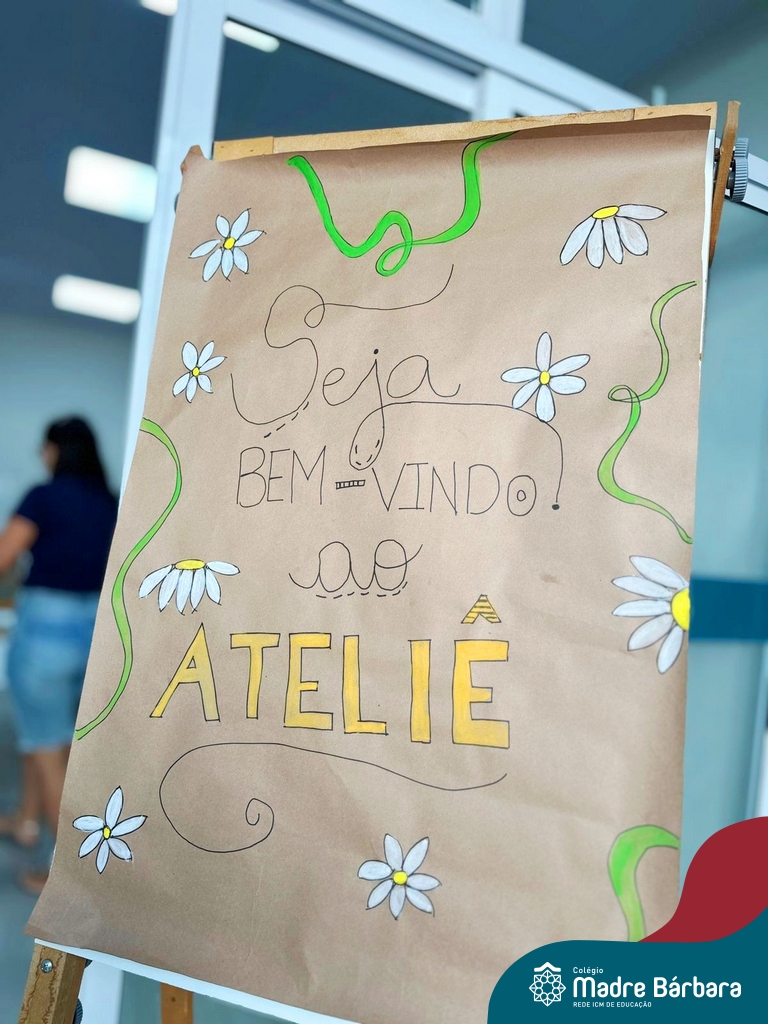 Seja
BEM-VINDO!
ao
ATELIÊ
Colégio
Madre Bárbara
REDE ICM DE EDUCAÇÃO